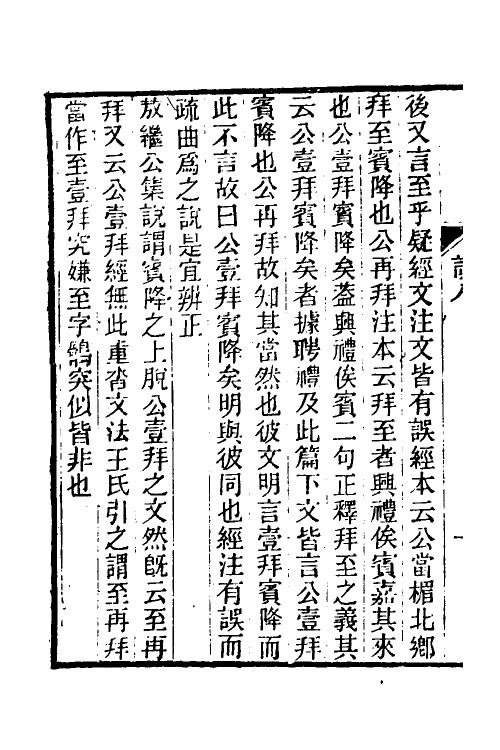 後又言至乎疑經文注文皆有誤經本云公當楣北鄉
拜至賓降也公再拜注本云拜至者興禮俟賓嘉其來
也公壹拜賓降矣葢興禮俟賓二句正釋拜至之義其
云公壹拜賓降矣者據聘禮及此篇下文皆言公壹拜
賓降也公再拜故知其當然也彼文明言壹拜賓降而
此不言故曰公壹拜賓降矣明與彼同也經注有誤而
疏曲爲之說是宜辨正
敖繼公集說謂賓降之上脫公壹拜之文然旣云至再
拜又云公壹拜經無此重沓文法王氏引之謂至再拜
當作至壹拜究嫌至字鶻突似皆非也